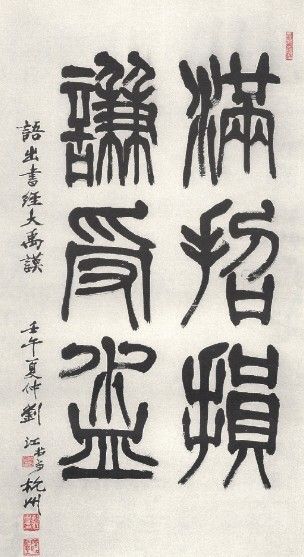 滿招損
謙受益
語出書經大禹謨
壬午夏仲劉江書於杭州